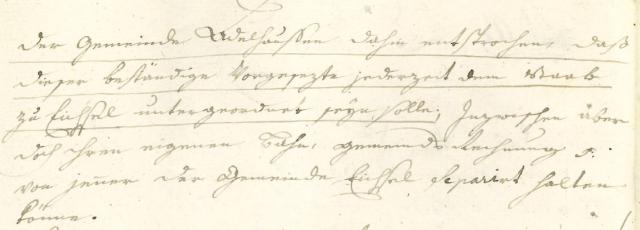 der Gemeinde Adelhaussen dahin entsprochen, daß
dieser beständige Vorgesezte jederzeit dem Staab
zu Eichsel untergeordnet seyn solle; Inzwischen aber
doch ihren eigenen Gemeinds Rechnung
von jener der Gemeinde Eichsel Separirt halten
könne.